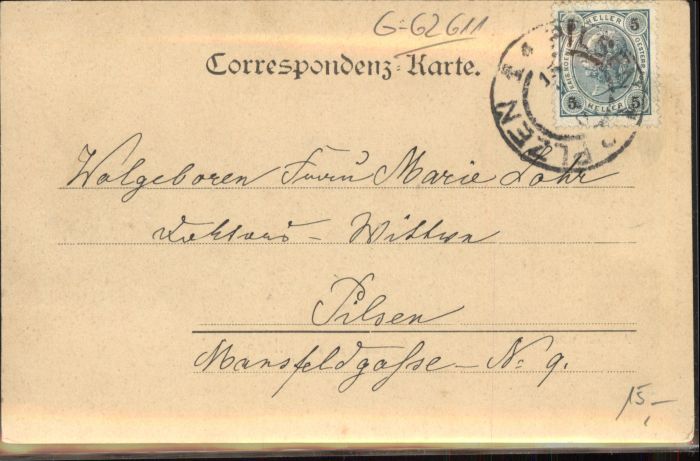 G-62611
Correspondenz-Karte.
5 HELLER 5
5 HELLER 5
PILSEN
PLZEN
Wolgeboren Frau Marie Lohr
Doktors - Wittwe
Pilsen
Mansfeldgasse - No 9.
15,-